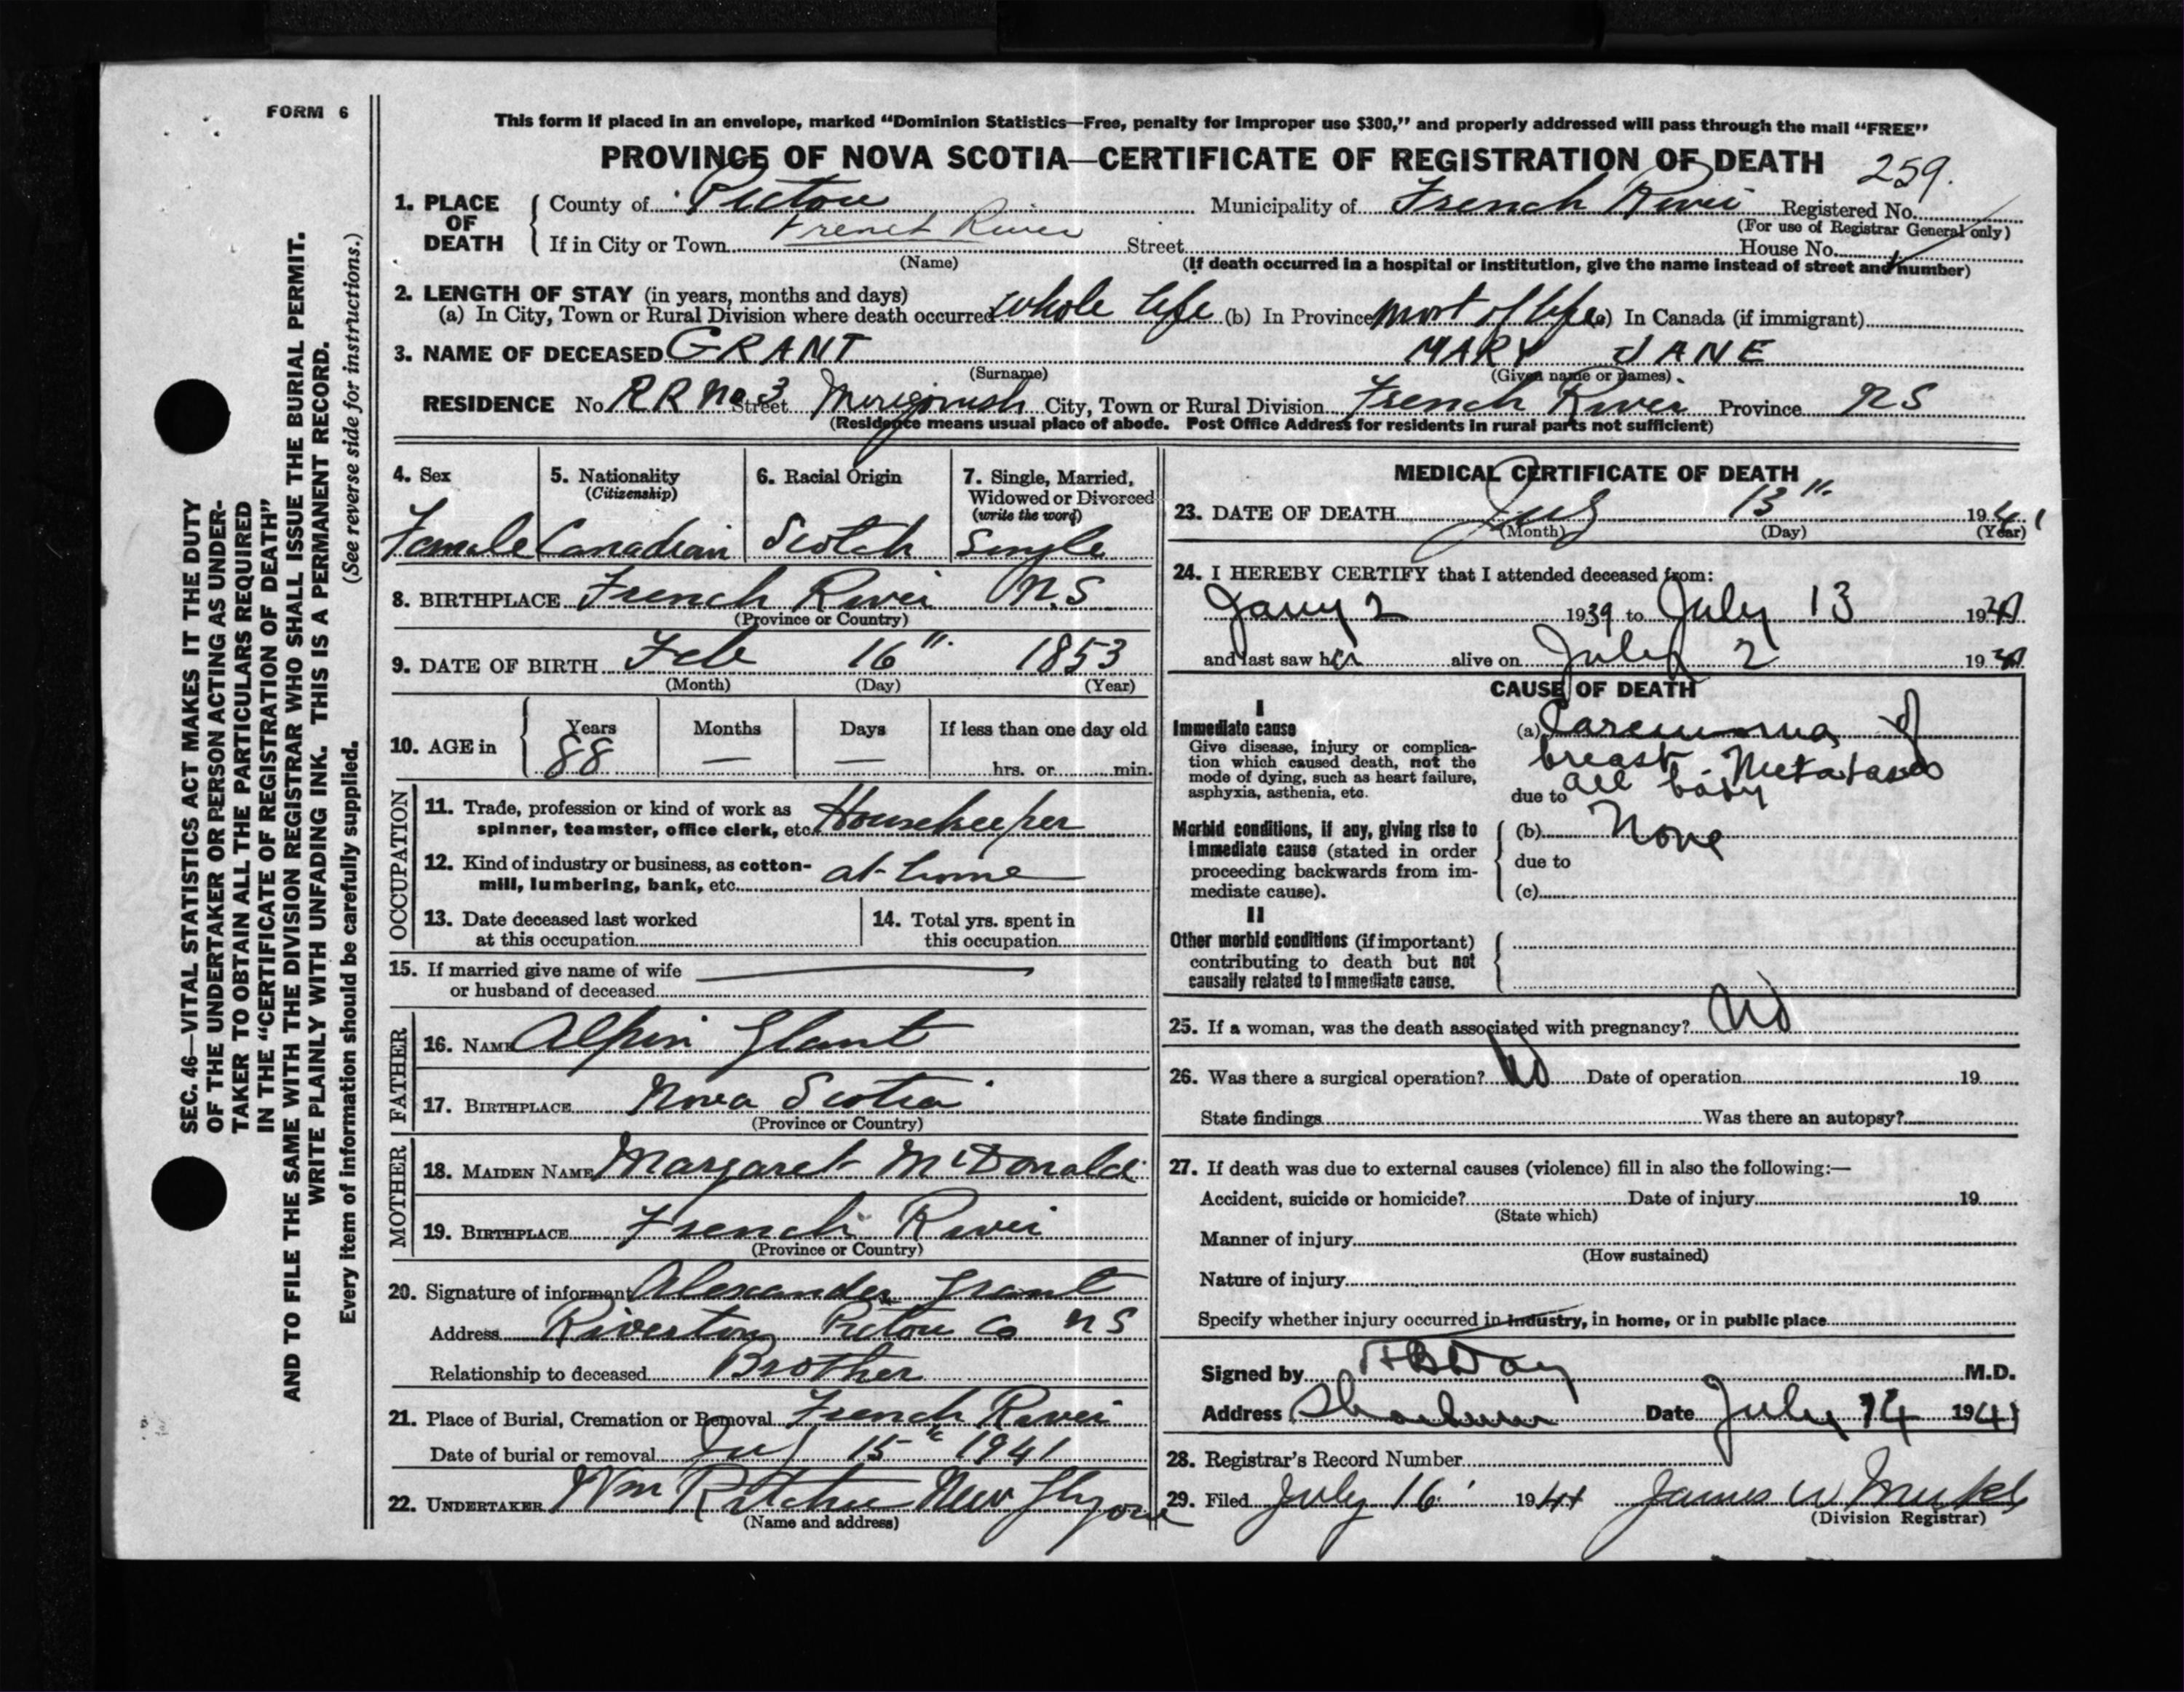 FORM 6
SEC. 46—VITAL STATISTICS ACT MAKES IT THE DUTY
OF THE UNDERTAKER OR PERSON ACTING AS UNDER-
TAKER TO OBTAIN ALL THE PARTICULARS REQUIRED
IN THE "CERTIFICATE OF REGISTRATION OF DEATH"
AND TO FILE THE SAME WITH THE DIVISION REGISTRAR WHO SHALL ISSUE THE BURIAL PERMIT.
WRITE PLAINLY WITH UNFADING INK. THIS IS A PERMANENT RECORD.
Every item of information should be carefully supplied. (See reverse side for instructions.)
This form if placed in an envelope, marked "Dominion Statistics—Free, penalty for improper use $300," and properly addressed will pass through the mail "FREE"
PROVINCE OF NOVA SCOTIA—CERTIFICATE OF REGISTRATION OF DEATH 259.
1. PLACE OF DEATH County of Pictou Municipality of French River Registered No.
(For use of Registrar General only)
If in City or Town French River Street House No.
(Name) (If death occurred in a hospital or institution, give the name instead of street and number)
2. LENGTH OF STAY (in years, months and days)
(a) In City, Town or Rural Division where death occurred whole life (b) In Province most of life (c) In Canada (if immigrant)
3. NAME OF DECEASED GRANT MARY JANE
(Surname) (Given name or names)
RESIDENCE No. RR No 3 Street Merigomish City, Town or Rural Division French River Province NS
(Residence means usual place of abode. Post Office Address for residents in rural parts not sufficient)
4. Sex 5. Nationality 6. Racial Origin 7. Single, Married,
(Citizenship) Widowed or Divorced
(write the word)
Female Canadian Scotch Single
8. BIRTHPLACE French River N.S.
(Province or Country)
9. DATE OF BIRTH Feb 16" 1853
(Month) (Day) (Year)
10. AGE in Years Months Days If less than one day old
88 — — hrs. or min.
OCCUPATION
11. Trade, profession or kind of work as
spinner, teamster, office clerk, etc. Housekeeper
12. Kind of industry or business, as cotton-
mill, lumbering, bank, etc. at home
13. Date deceased last worked
at this occupation
14. Total yrs. spent in
this occupation
15. If married give name of wife
or husband of deceased
FATHER
16. NAME Alpin Grant
17. BIRTHPLACE Nova Scotia
(Province or Country)
MOTHER
18. MAIDEN NAME Margaret McDonald
19. BIRTHPLACE French River
(Province or Country)
20. Signature of informant Alexander Grant
Address Riverton Pictou Co NS
Relationship to deceased Brother
21. Place of Burial, Cremation or Removal French River
Date of burial or removal July 15th 1941
22. UNDERTAKER Wm Ritchie New Glasgow
(Name and address)
MEDICAL CERTIFICATE OF DEATH
23. DATE OF DEATH July 13" 1941
(Month) (Day) (Year)
24. I HEREBY CERTIFY that I attended deceased from:
Jany 2 1939 to July 13 1941
and last saw her alive on July 2 1941
CAUSE OF DEATH
I
Immediate cause
Give disease, injury or complica-
tion which caused death, not the
mode of dying, such as heart failure,
asphyxia, asthenia, etc.
(a) Carcinoma of
breast. Metastases
due to all body
Morbid conditions, if any, giving rise to
immediate cause (stated in order
proceeding backwards from im-
mediate cause).
(b) None
due to
(c)
II
Other morbid conditions (if important)
contributing to death but not
causally related to immediate cause.
25. If a woman, was the death associated with pregnancy? No
26. Was there a surgical operation? No Date of operation 19
State findings Was there an autopsy?
27. If death was due to external causes (violence) fill in also the following:—
Accident, suicide or homicide? Date of injury 19
(State which)
Manner of injury
(How sustained)
Nature of injury
Specify whether injury occurred in industry, in home, or in public place
Signed by M.D.
Address Date July 14 1941
28. Registrar's Record Number
29. Filed July 16 1941 James W
(Division Registrar)